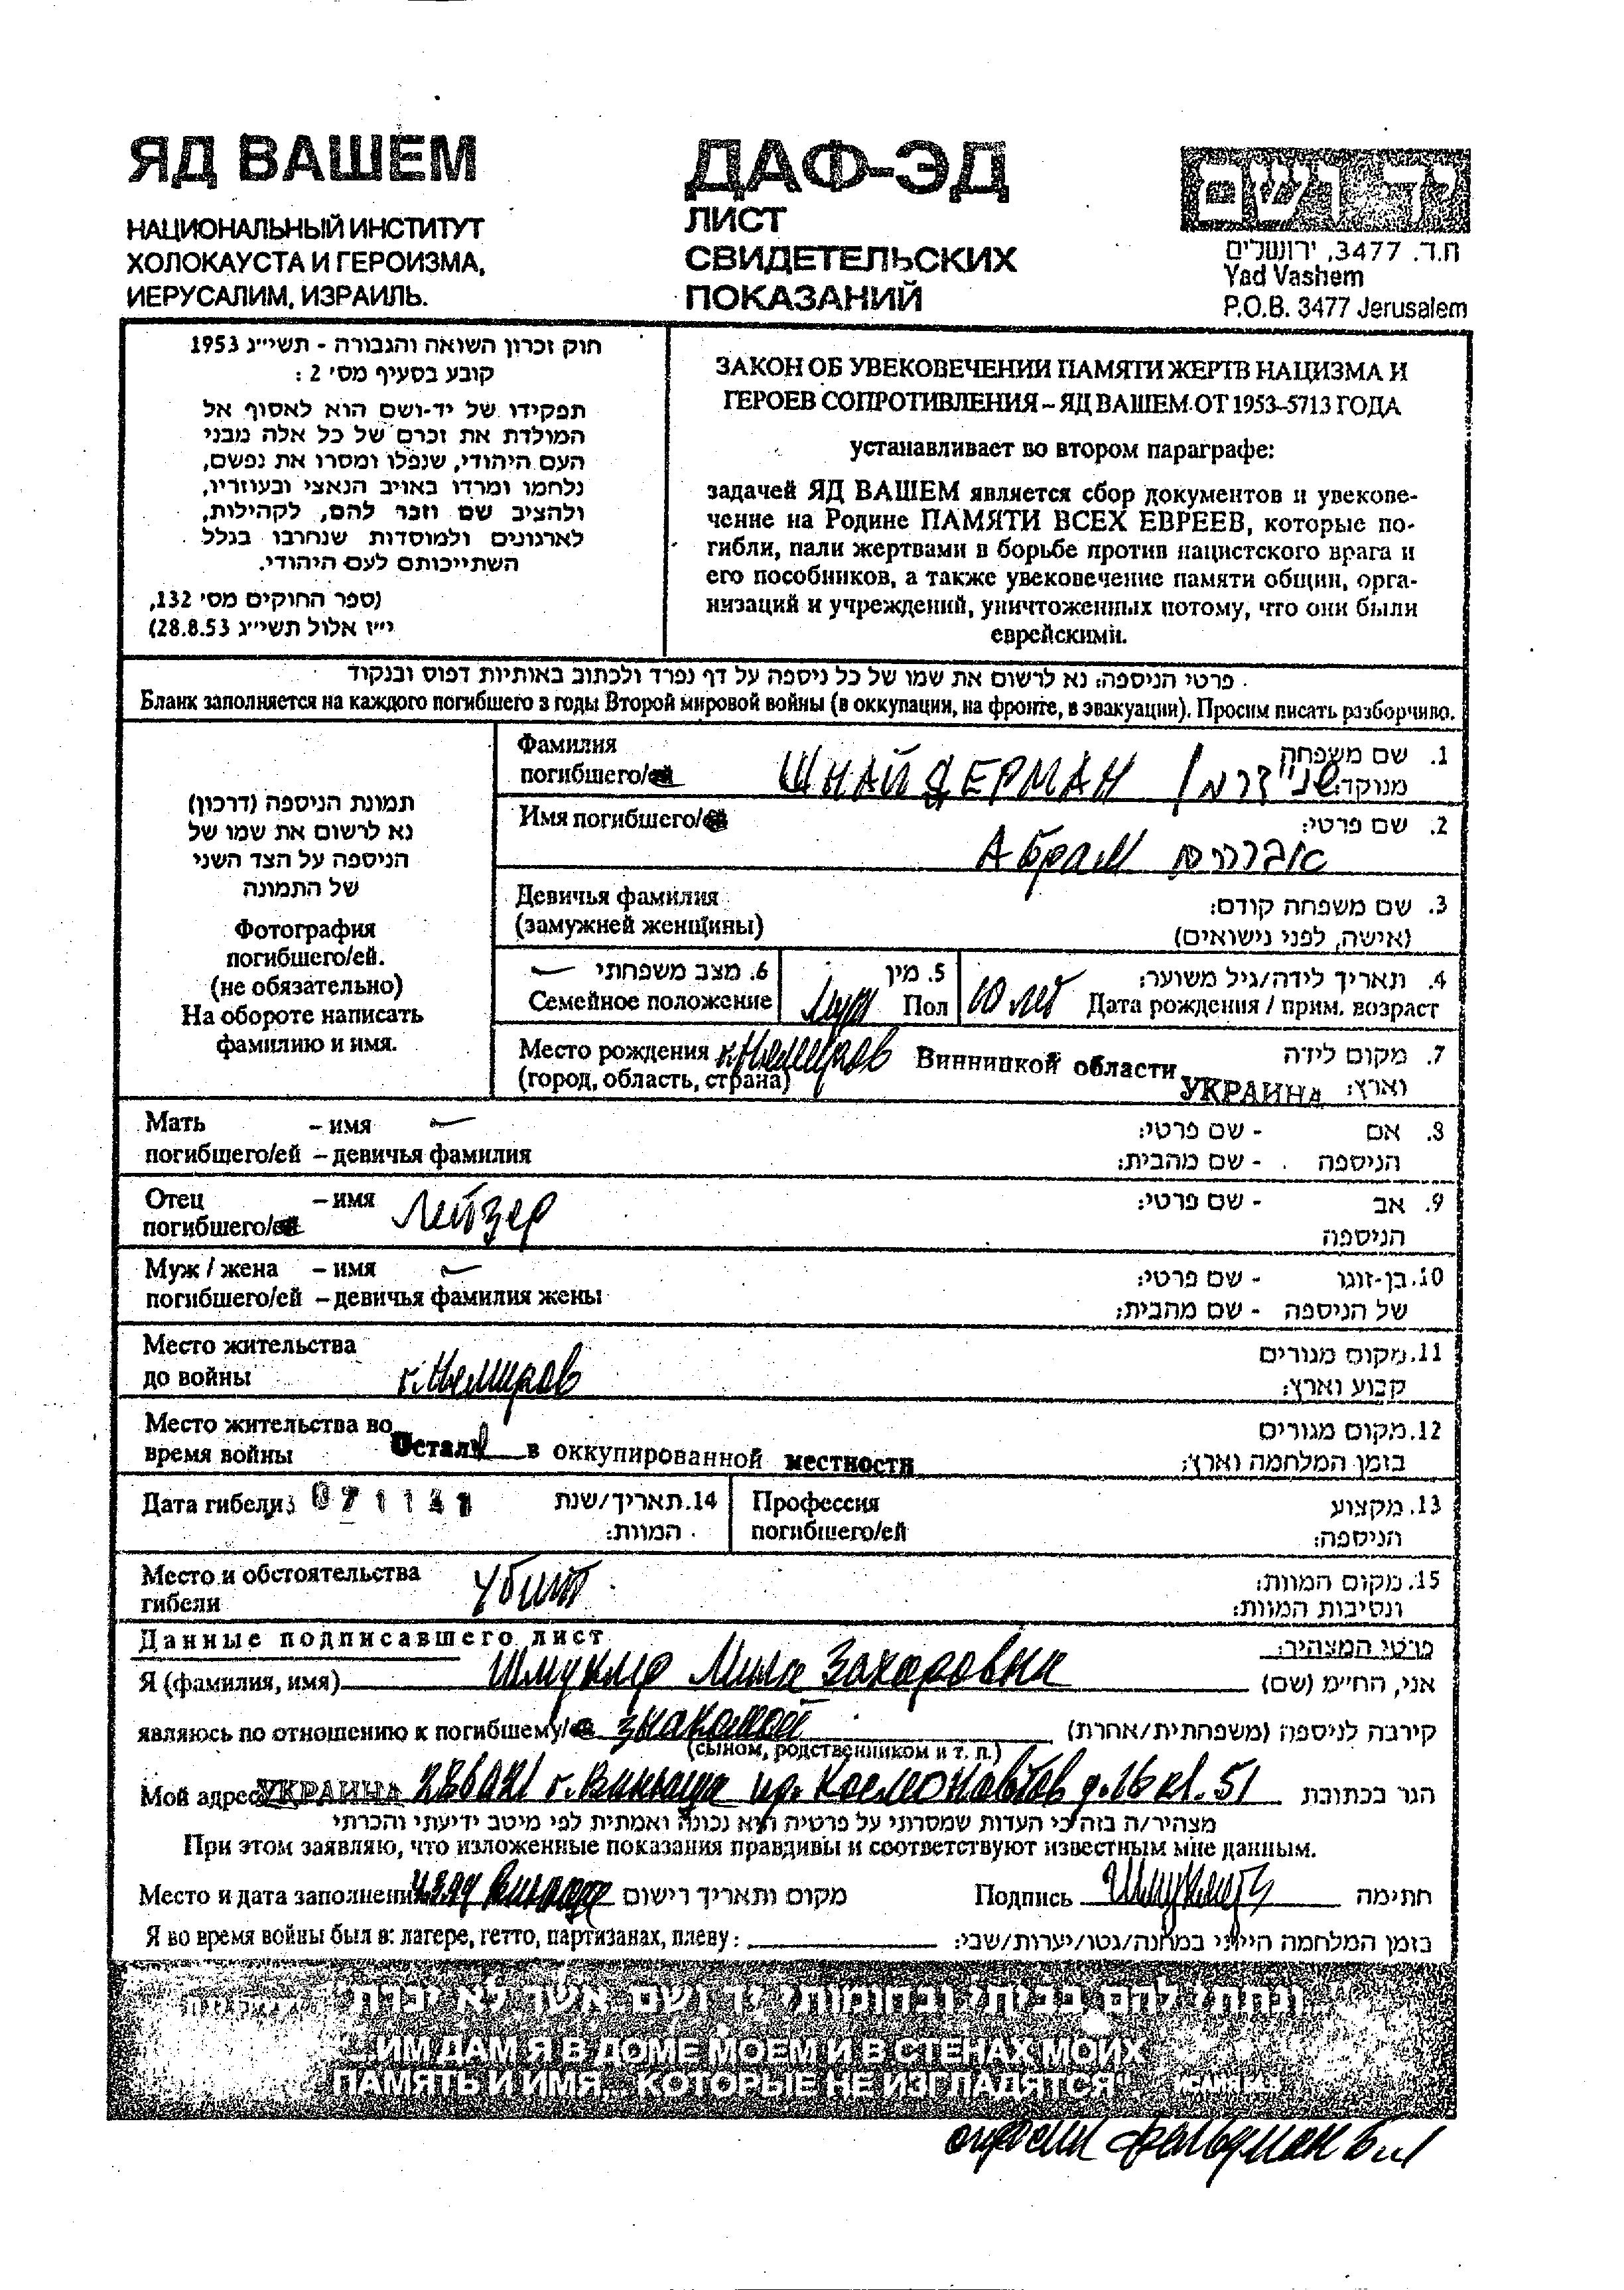 ЯД ВАШЕМ
НАЦИОНАЛЬНЫЙ ИНСТИТУТ
ХОЛОКАУСТА И ГЕРОИЗМА,
ИЕРУСАЛИМ, ИЗРАИЛЬ.
ДАФ-ЭД
ЛИСТ
СВИДЕТЕЛЬСКИХ
ПОКАЗАНИЙ
יד ושם
ת.ד. 3477, ירושלים
Yad Vashem
P.O.B. 3477 Jerusalem
חוק זכרון השואה והגבורה - תשי״ג 1953
קובע בסעיף מס׳ 2:
תפקידו של יד-ושם הוא לאסוף אל
המולדת את זכרם של כל אלה מבני
העם היהודי, שנפלו ומסרו את נפשם,
נלחמו ומרדו באויב הנאצי ובעוזריו,
ולהציב שם וזכר להם, לקהילות,
לארגונים ולמוסדות שנחרבו בגלל
השתייכותם לעם היהודי.
(ספר החוקים מס׳ 132,
י״ז אלול תשי״ג 28.8.53)
ЗАКОН ОБ УВЕКОВЕЧЕНИИ ПАМЯТИ ЖЕРТВ НАЦИЗМА И
ГЕРОЕВ СОПРОТИВЛЕНИЯ – ЯД ВАШЕМ ОТ 1953–5713 ГОДА
устанавливает во втором параграфе:
задачей ЯД ВАШЕМ является сбор документов и увекове-
чение на Родине ПАМЯТИ ВСЕХ ЕВРЕЕВ, которые по-
гибли, пали жертвами в борьбе против нацистского врага и
его пособников, а также увековечение памяти общин, орга-
низаций и учреждений, уничтоженных потому, что они были
еврейскими.
פרטי הניספה: נא לרשום את שמו של כל ניספה על דף נפרד ולכתוב באותיות דפוס ובנקוד
Бланк заполняется на каждого погибшего в годы Второй мировой войны (в оккупации, на фронте, в эвакуации). Просим писать разборчиво.
תמונת הניספה (דרכון)
נא לרשום את שמו של
הניספה על הצד השני
של התמונה
Фотография
погибшего/ей.
(не обязательно)
На обороте написать
фамилию и имя.
Фамилия 1. שם משפחה
погибшего/ей ШНАЙДЕРМАН שניידרמן מנוקד:
Имя погибшего/ей 2. שם פרטי:
Абрам אברהם
Девичья фамилия 3. שם משפחה קודם:
(замужней женщины) (אישה, לפני נישואים)
6. מצב משפחתי 5. מין 4. תאריך לידה/גיל משוער:
Семейное положение Пол 10 лет Дата рождения / прим. возраст
Место рождения г. Немиров Винницкой области 7. מקום לידה
(город, область, страна) УКРАИНА וארץ:
Мать – имя 8. אם - שם פרטי:
погибшего/ей – девичья фамилия הניספה - שם מהבית:
Отец – имя Лейзер 9. אב - שם פרטי:
погибшего/ей הניספה
Муж / жена – имя 10. בן-זוגו - שם פרטי:
погибшего/ей – девичья фамилия жены של הניספה - שם מהבית:
Место жительства 11. מקום מגורים
до войны г. Немиров קבוע וארץ:
Место жительства во 12. מקום מגורים
время войны Остал в оккупированной местности בזמן המלחמה וארץ:
Дата гибели 14. תאריך/שנת Профессия 13. מקצוע
המוות: погибшего/ей הניספה:
Место и обстоятельства 15. מקום המוות:
гибели убит ונסיבות המוות:
Данные подписавшего лист פרטי המצהיר:
Я (фамилия, имя) Шмуклер Мила Захаровна אני, החיימ (שם)
являюсь по отношению к погибшему/ей знакомой קירבה לניספה (משפחתית/אחרת)
(сыном, родственником и т. п.)
Мой адрес УКРАИНА г. Винница пр. Космонавтов д. 16 кв. 51 הגר בכתובת
מצהיר/ה בזה כי העדות שמסרתי על פרטיה היא נכונה ואמתית לפי מיטב ידיעתי והכרתי
При этом заявляю, что изложенные показания правдивы и соответствуют известным мне данным.
Место и дата заполнения Винница מקום ותאריך רישום Подпись חתימה
Я во время войны был в: лагере, гетто, партизанах, плену: בזמן המלחמה הייתי במחנה/גטו/יערות/שבי:
ונתתי להם בביתי ובחומותי יד ושם אשר לא יכרת
...ИМ ДАМ Я В ДОМЕ МОЕМ И В СТЕНАХ МОИХ
ПАМЯТЬ И ИМЯ... КОТОРЫЕ НЕ ИЗГЛАДЯТСЯ
Фельдман